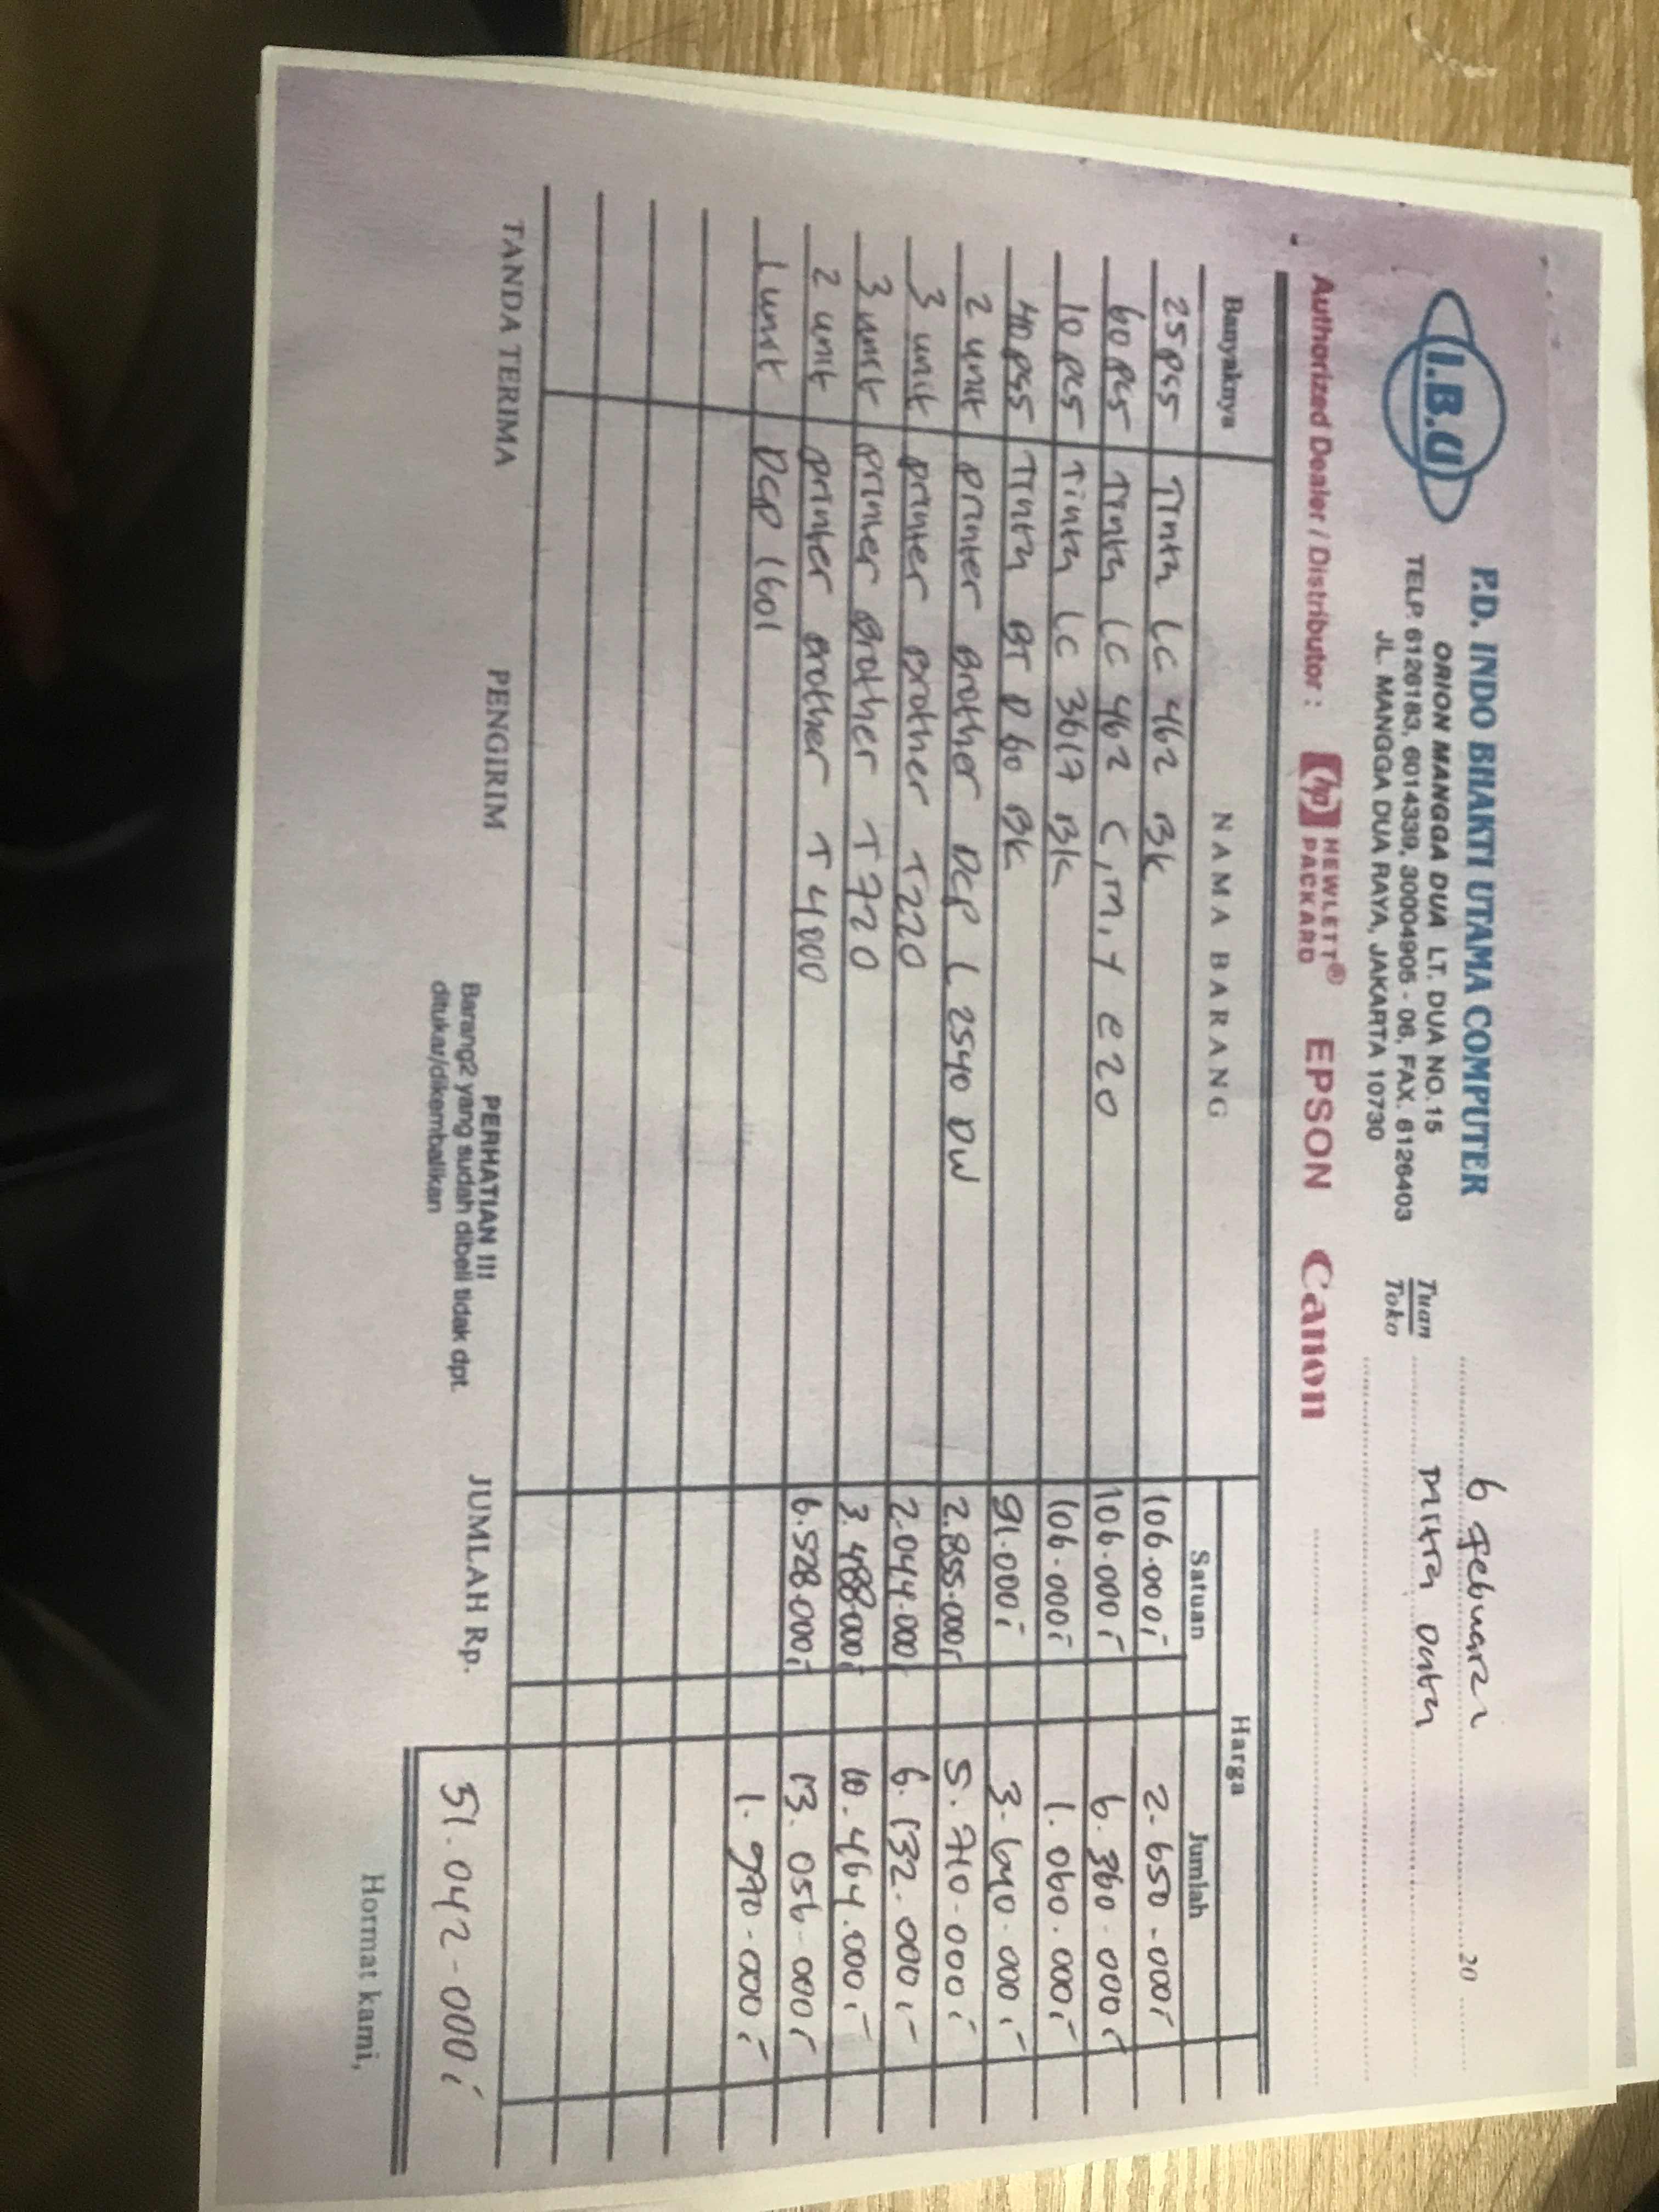 I.B.U
P.D. INDO BHAKTI UTAMA COMPUTER
ORION MANGGA DUA LT. DUA NO. 15
TELP. 6126183, 6014339, 30004905 - 06, FAX. 6126403
JL. MANGGA DUA RAYA, JAKARTA 10730
6 Februari 20
Tuan
Toko
Mitra Data
Authorized Dealer / Distributor : hp HEWLETT® PACKARD EPSON Canon
Banyaknya NAMA BARANG Harga
Satuan Jumlah
25 pcs Tinta LC 462 BK 106.000 2.650.000
60 pcs Tinta LC 462 C, M, Y e 20 106.000 6.360.000
10 pcs Tinta LC 3617 BK 106.000 1.060.000
40 pcs Tinta BT D 60 BK 91.000 3.640.000
2 unit printer Brother DCP L 2540 DW 2.855.000 5.710.000
3 unit printer Brother T220 2.044.000 6.132.000
3 unit printer Brother T720 3.488.000 10.464.000
2 unit printer Brother T4000 6.528.000 13.056.000
1 unit DCP 1601 1.970.000
TANDA TERIMA PENGIRIM
PERHATIAN !!!
Barang2 yang sudah dibeli tidak dpt.
ditukar/dikembalikan
JUMLAH Rp. 51.042.000
Hormat kami,